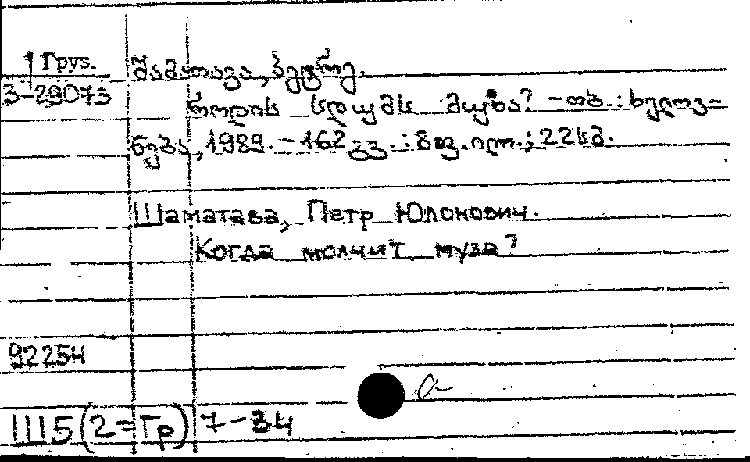 Груз.
3-29073
შამათავა, პეტრე.
როდის სდუმს მუზა? - თბ.: ხელოვ-
ნება, 1989. - 162 გვ.: 8 გვ. ილ.; 22 სმ.
Шаматава, Петр Юлонович.
Когда молчит муза?
92254
Щ5(2=Гр)7-34